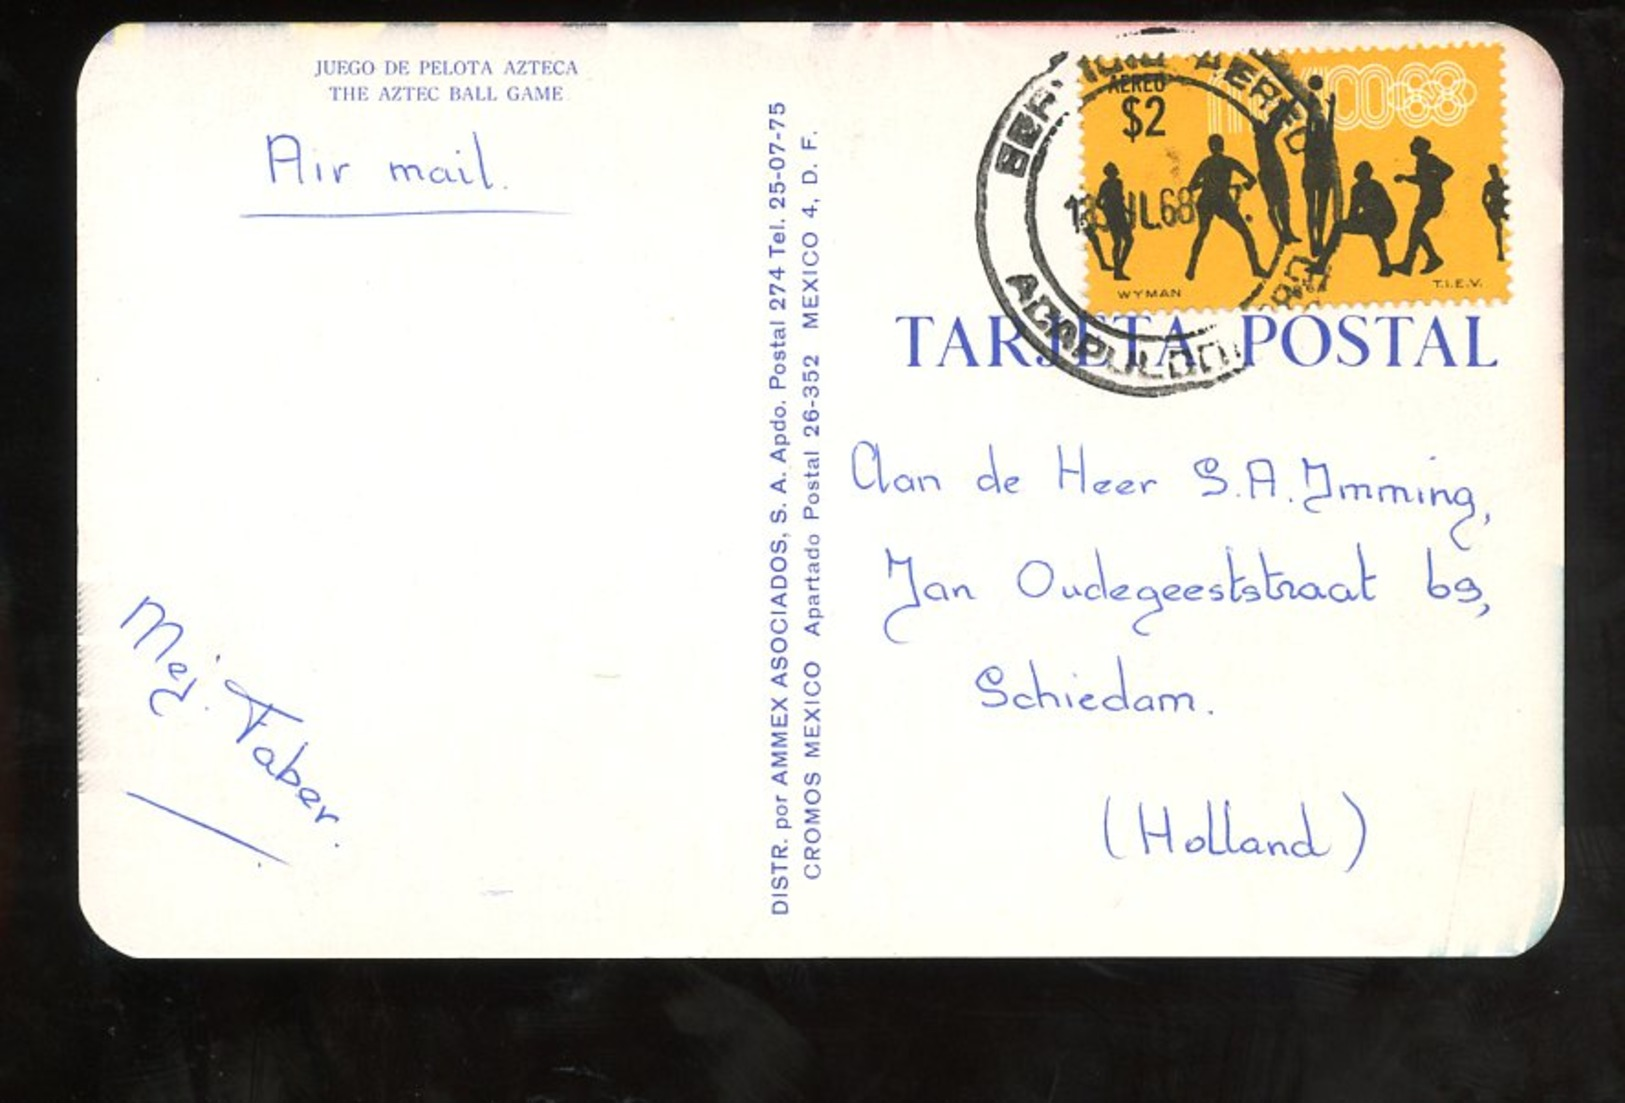 JUEGO DE PELOTA AZTECA
THE AZTEC BALL GAME
Air mail.
Mej. Taber.
DISTR. por AMMEX ASOCIADOS, S. A. Apdo. Postal 274 Tel. 25-07-75
CROMOS MEXICO Apartado Postal 26-352 MEXICO 4, D. F.
AEREO
$2
68
WYMAN
T.I.E.V.
AEREO
JUL. 68
ACAPULCO
TARJETA POSTAL
Aan de Heer S.A. Imming,
Jan Oudegeeststraat 69,
Schiedam.
(Holland)